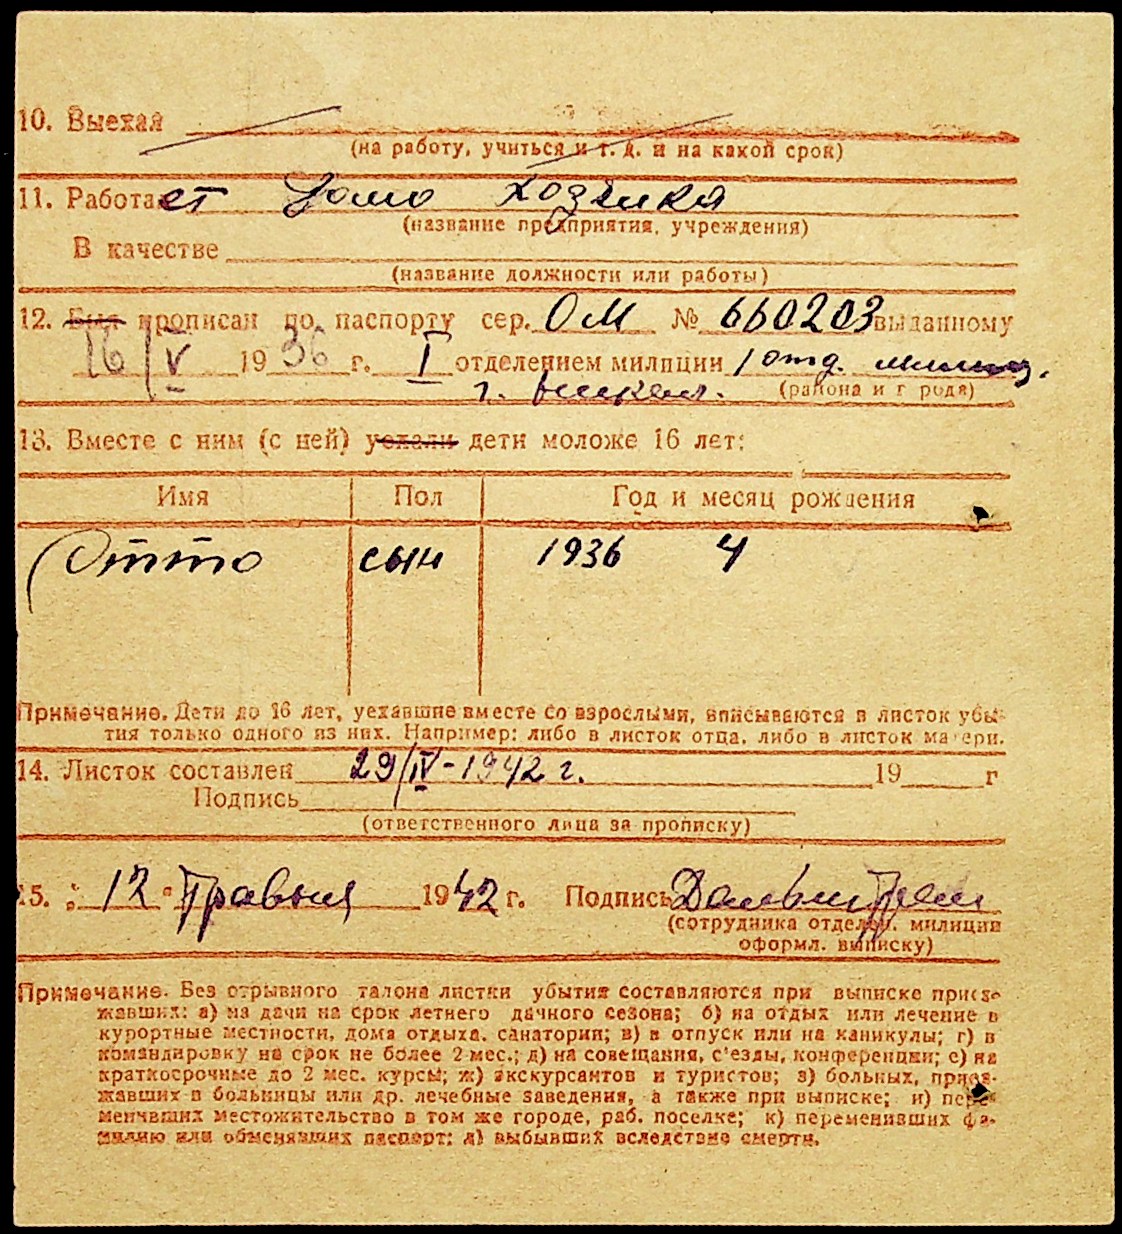 10. Выехал
(на работу, учиться и т. д. и на какой срок)
11. Работает Домо хозяйка
(название предприятия, учреждения)
В качестве
(название должности или работы)
12. Был прописан по паспорту сер. ОМ № 660203 выданному
16/V 1936 г. I отделением милиции 1 отд. милиц.
г. (района и города)
13. Вместе с ним (с ней) уехали дети моложе 16 лет:
Имя Пол Год и месяц рождения
Отто сын 1936 4
Примечание. Дети до 16 лет, уехавшие вместе со взрослыми, вписываются в листок убы-
тия только одного из них. Например: либо в листок отца, либо в листок матери.
14. Листок составлен 29/IV-1942 г. 19 г
Подпись
(ответственного лица за прописку)
15. „ 12 " Травыня 1942 г. Подпись
(сотрудника отделен. милиции
оформл. выписку)
Примечание. Без отрывного талона листки убытия составляются при выписке приез-
жавших: а) на дачи на срок летнего дачного сезона; б) на отдых или лечение в
курортные местности, дома отдыха, санатории; в) в отпуск или на каникулы; г) в
командировку на срок не более 2 мес.; д) на совещания, с'езды, конференции; е) на
краткосрочные до 2 мес. курсы; ж) экскурсантов и туристов; з) больных, приез-
жавших в больницы или др. лечебные заведения, а также при выписке; и) пере-
менивших местожительство в том же городе, раб. поселке; к) переменивших фа-
милию или обменявших паспорт; л) выбывших вследствие смерти.